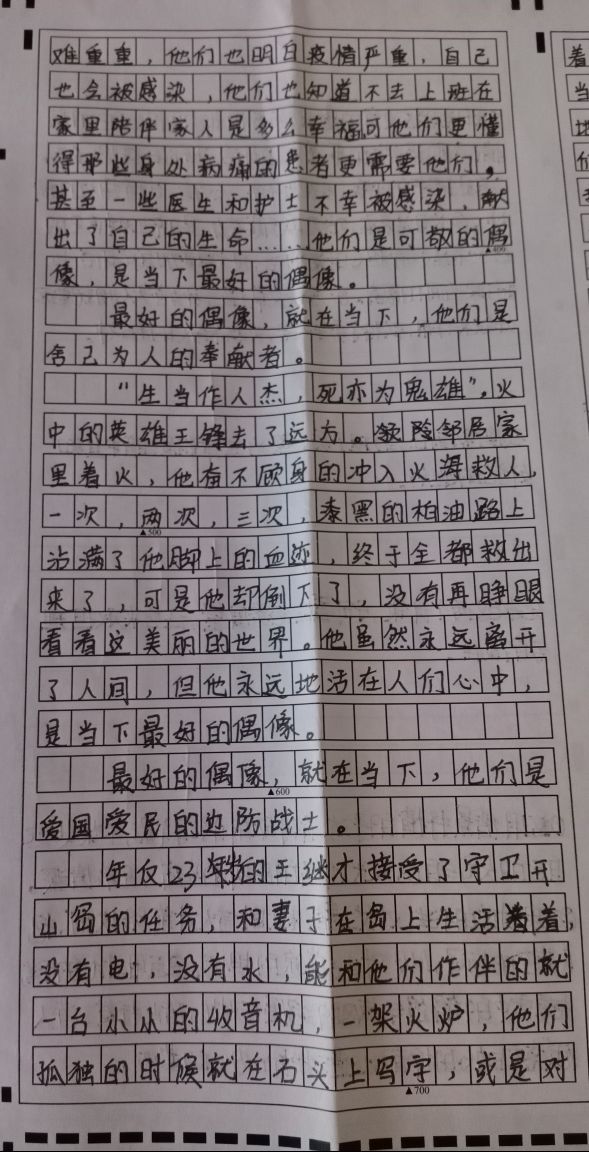 难重重，他们也明白疫情严重，自己
也会被感染，他们也知道不去上班在
家里陪伴家人是多么幸福可他们更懂
得那些身处病痛的患者更需要他们，
甚至一些医生和护士不幸被感染，献
出了自己的生命……他们是可敬的偶
▲400
像，是当下最好的偶像。
最好的偶像，就在当下，他们是
舍己为人的奉献者。
“生当作人杰，死亦为鬼雄”，火
中的英雄王锋去了远方。邻居家
里着火，他奋不顾身的冲入火海救人，
一次，两次，三次，漆黑的柏油路上
▲500
沾满了他脚上的血迹，终于全都救出
来了，可是他却倒下了，没有再睁眼
看看这美丽的世界。他虽然永远离开
了人间，但他永远地活在人们心中，
是当下最好的偶像。
最好的偶像，就在当下，他们是
▲600
爱国爱民的边防战士。
年仅23岁的王继才接受了守卫开
山岛的任务，和妻子在岛上生活着，
没有电，没有水，能和他们作伴的就
一台小小的收音机，一架火炉，他们
孤独的时候就在石头上写字，或是对
▲700
着
当
地
们